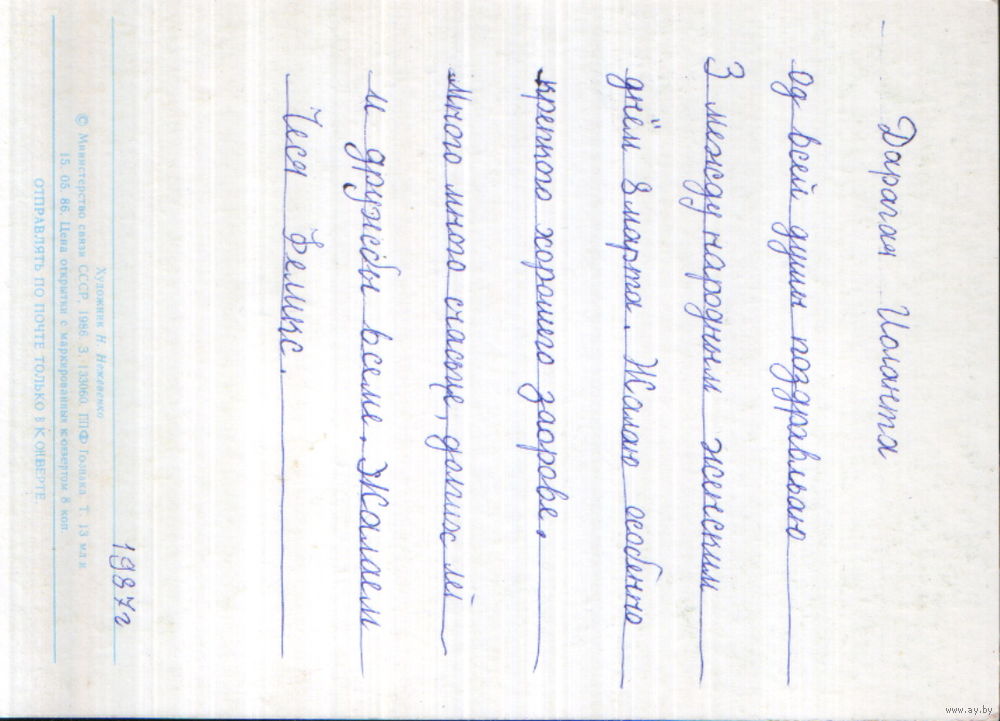 Дарагая Иоланта
од всей души поздравльаю
З международным женским
днём 8 марта. Жалаю особенно
крепкого хорошего заоровье.
Много много счасьце, долгих лей
и дружсбы всеме. Жалаем
Чеся Феликс.
1987г
Художник Н. Неженцева
© Министерство связи СССР, 1986. З. 133060. ППФ Гознака. Т. 13 млн.
15. 05 86. Цена открытки с маркированным конвертом 8 коп.
ОТПРАВЛЯТЬ ПО ПОЧТЕ ТОЛЬКО В КОНВЕРТЕ.
www.ay.by